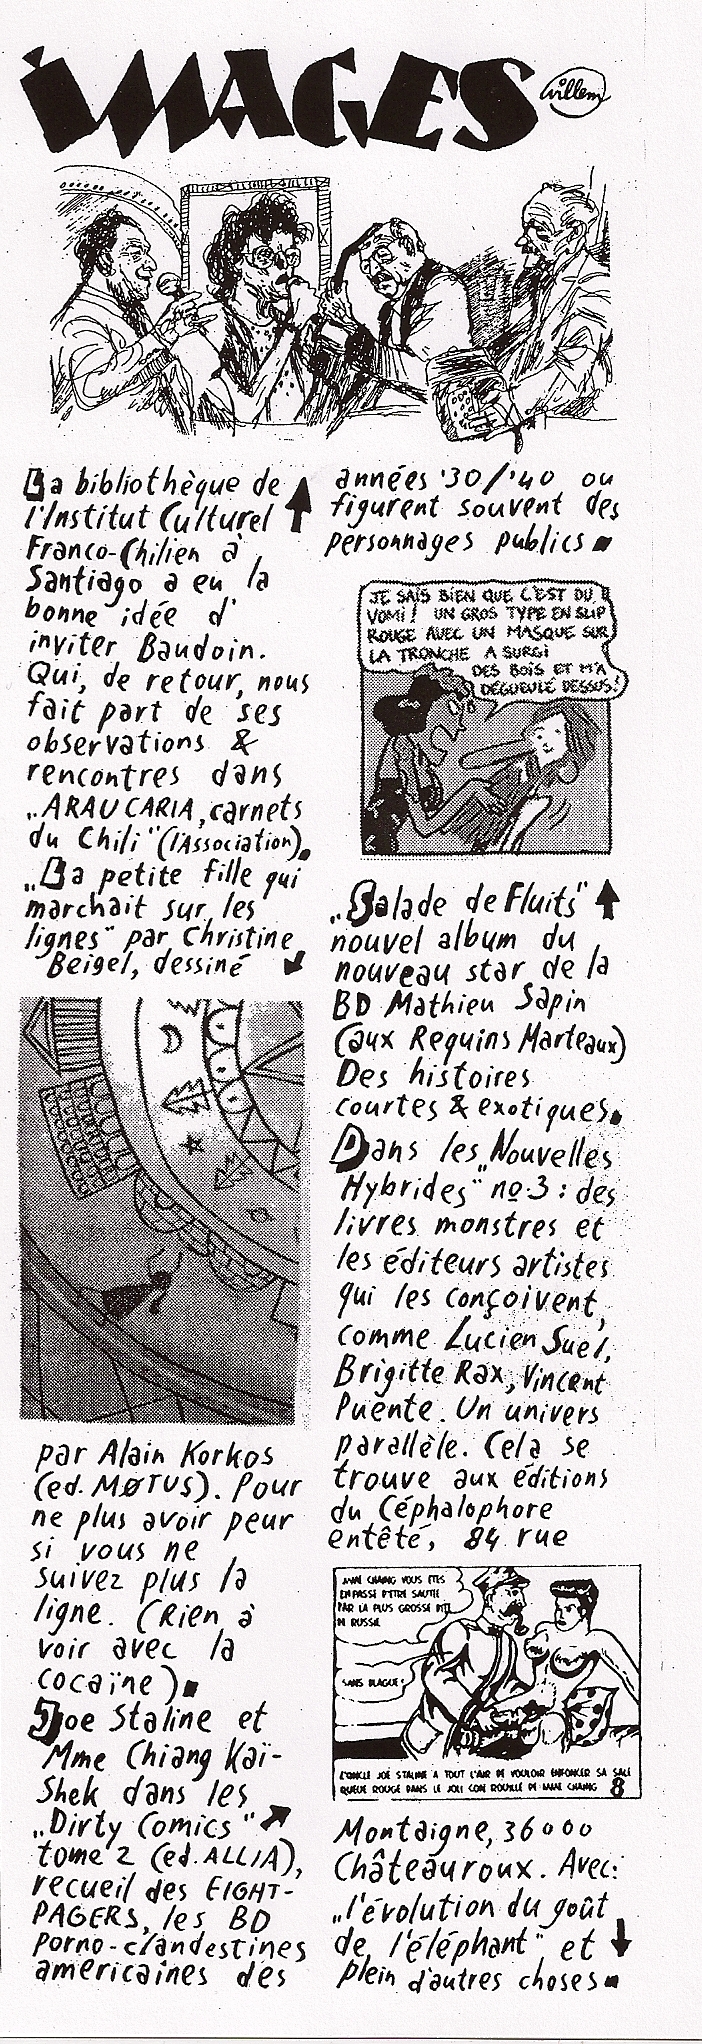 IMAGES
Willem
La bibliothèque de
l'Institut Culturel
Franco-Chilien à
Santiago a eu la
bonne idée d'
inviter Baudoin.
Qui, de retour, nous
fait part de ses
observations &
rencontres dans
„ARAUCARIA, carnets
du Chili" (l'Association).
„La petite fille qui
marchait sur les
lignes" par Christine
Beigel, dessiné
par Alain Korkos
(ed. MØTUS). Pour
ne plus avoir peur
si vous ne
suivez plus la
ligne. (Rien à
voir avec la
cocaïne)
Joe Staline et
Mme Chiang Kaï-
Shek dans les
„Dirty Comics"
tome 2 (ed. ALLIA),
recueil des EIGHT-
PAGERS, les BD
porno-clandestines
americaines des
années '30/'40 ou
figurent souvent des
personnages publics
JE SAIS BIEN QUE C'EST DU
VOMI! UN GROS TYPE EN SLIP
ROUGE AVEC UN MASQUE SUR
LA TRONCHE A SURGI
DES BOIS ET M'A
DÉGUEULÉ DESSUS!
„Salade de Fluits"
nouvel album du
nouveau star de la
BD Mathieu Sapin
(aux Requins Marteaux)
Des histoires
courtes & exotiques.
Dans les „Nouvelles
Hybrides" no.3 : des
livres monstres et
les éditeurs artistes
qui les conçoivent,
comme Lucien Suel,
Brigitte Rax, Vincent
Puente. Un univers
parallèle. Cela se
trouve aux éditions
du Céphalophore
entêté, 84 rue
MME CHAING VOUS ETES
EN PASSE D'ETRE SAUTÉE
PAR LA PLUS GROSSE
DE RUSSIE
SANS BLAGUE!
L'ONCLE JOE STALINE A TOUT L'AIR DE VOULOIR ENFONCER SA SALE
QUEUE ROUGE DANS LE JOLI CON ROUILLÉ DE MME CHAING 8
Montaigne, 36000
Châteauroux. Avec:
„l'évolution du goût
de l'éléphant" et
plein d'autres choses